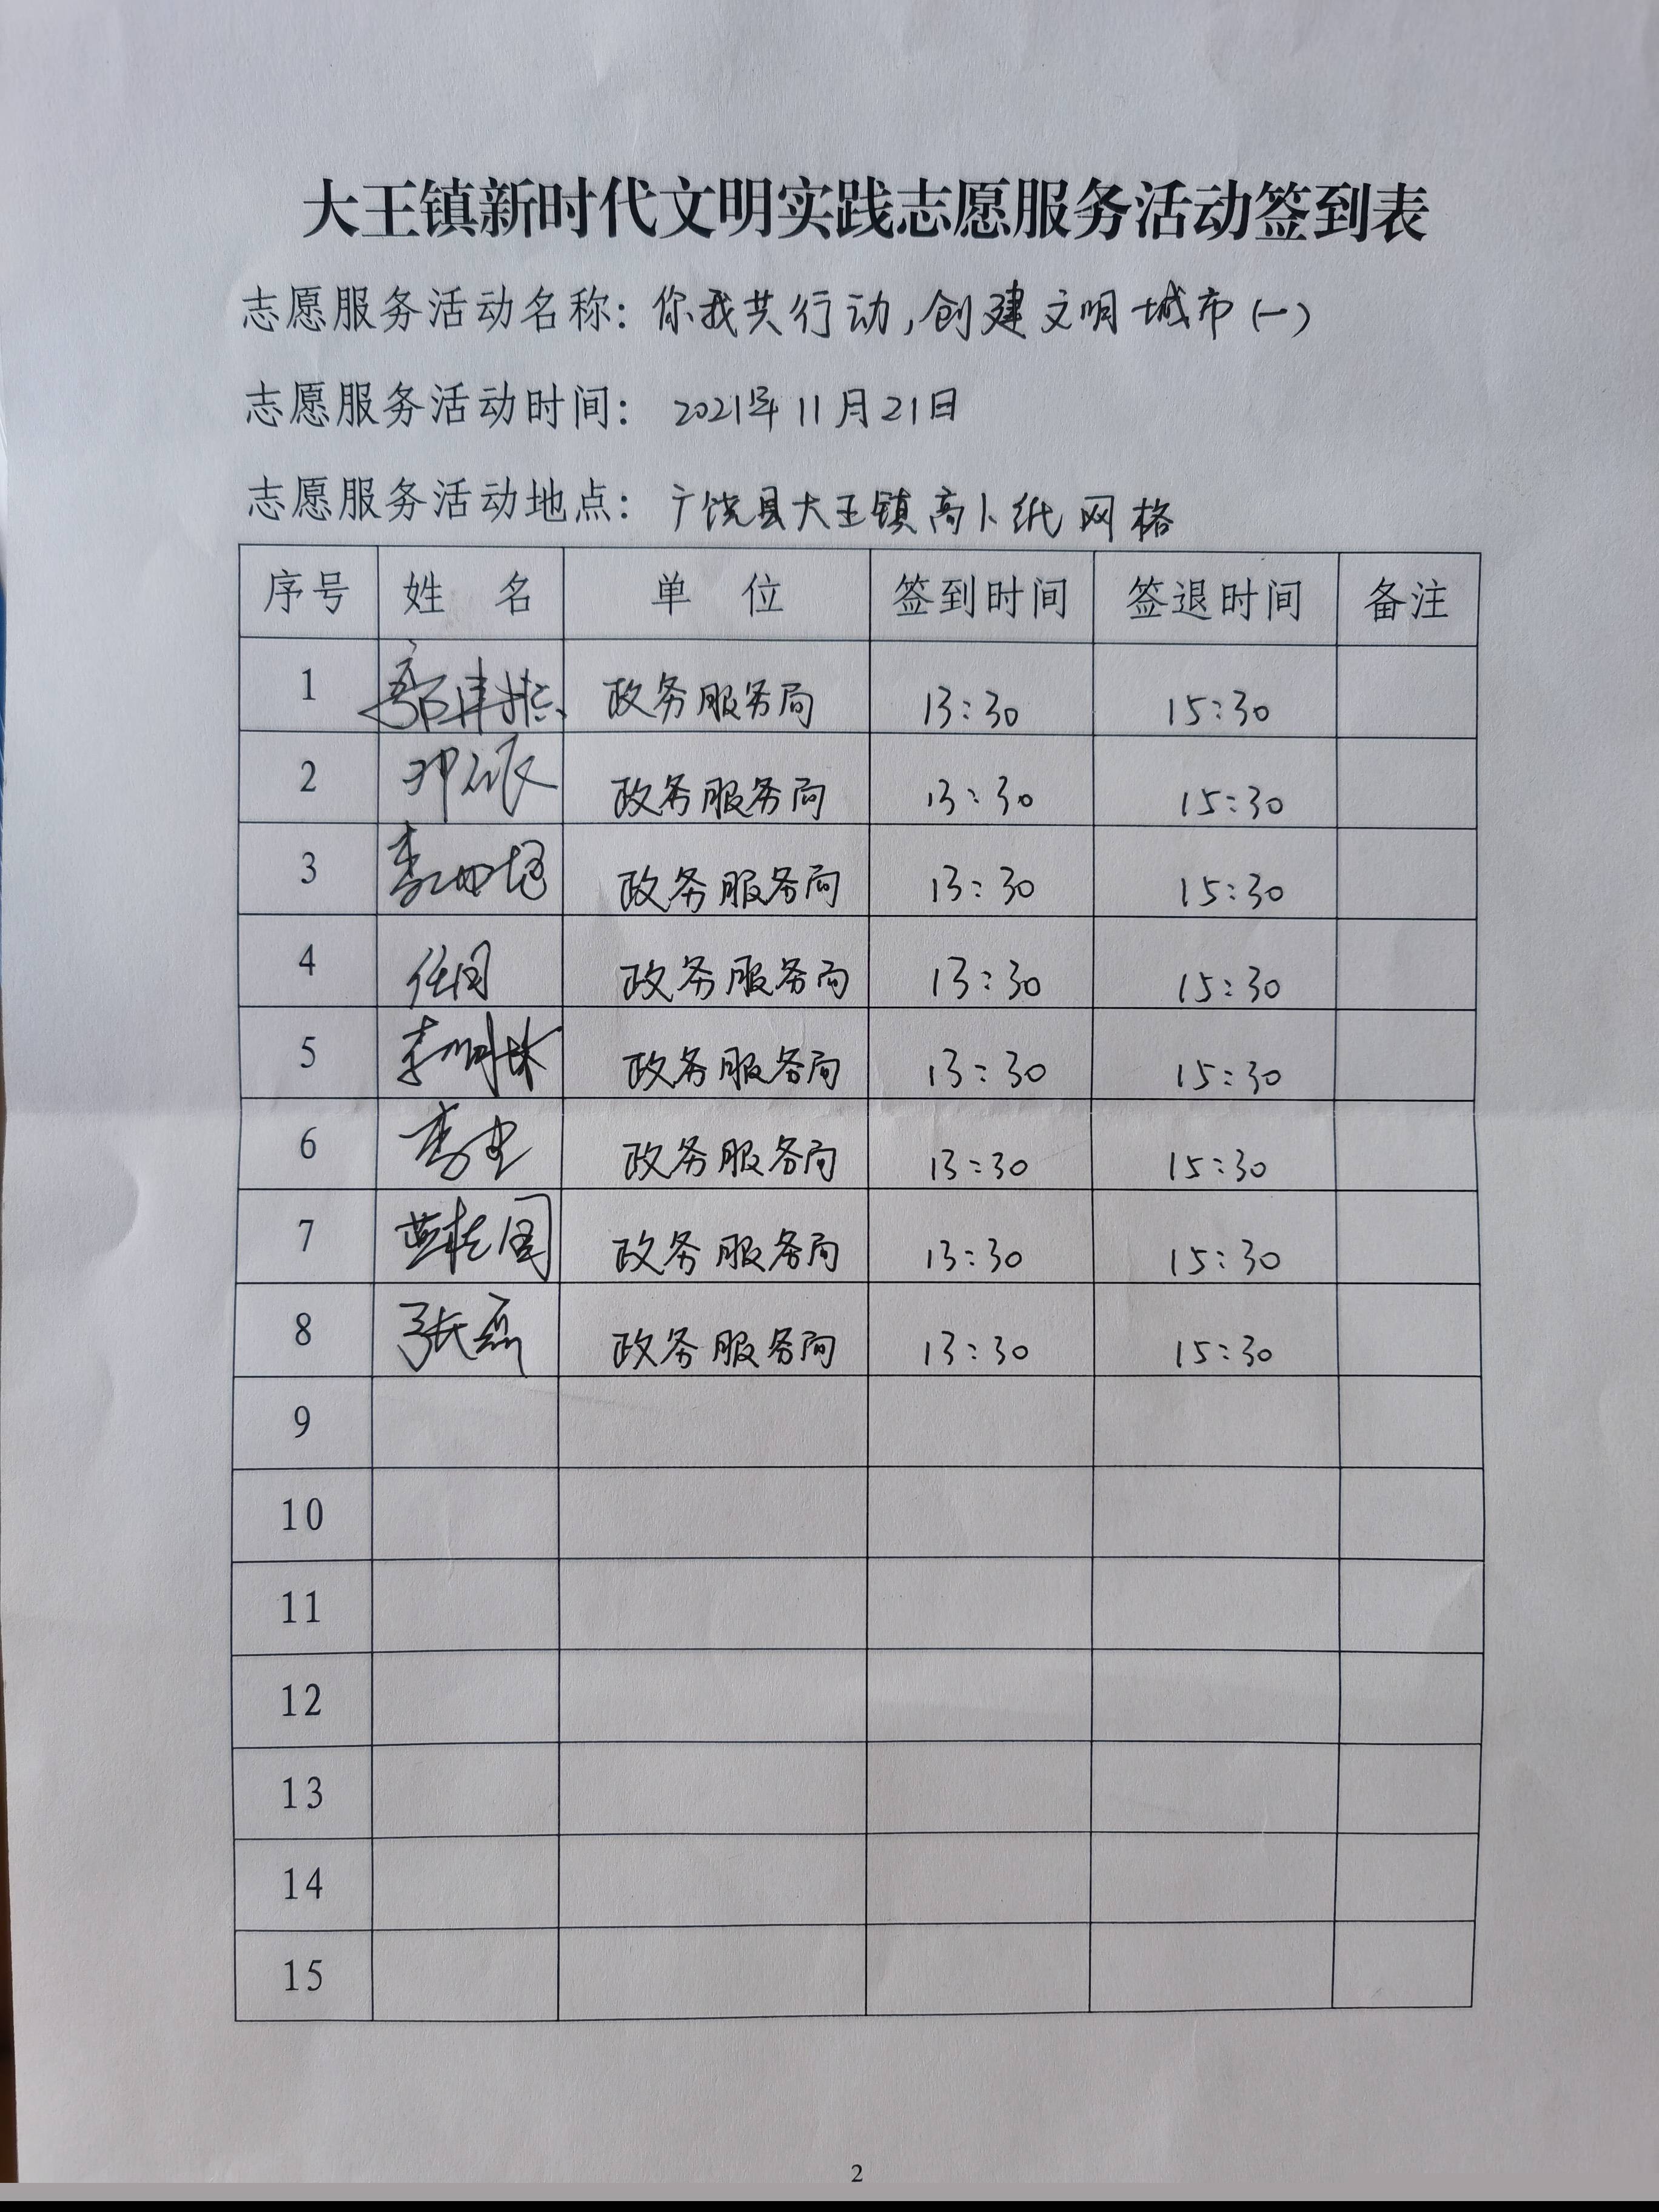 大王镇新时代文明实践志愿服务活动签到表
志愿服务活动名称：你我共行动，创建文明城市（一）
志愿服务活动时间：2021年11月21日
志愿服务活动地点：广饶县大王镇高卜纸网格
序号 姓名 单位 签到时间 签退时间 备注
1 政务服务局 13:30 15:30
2 政务服务局 13:30 15:30
3 政务服务局 13:30 15:30
4 政务服务局 13:30 15:30
5 李明林 政务服务局 13:30 15:30
6 政务服务局 13:30 15:30
7 政务服务局 13:30 15:30
8 张磊 政务服务局 13:30 15:30
9
10
11
12
13
14
15
2